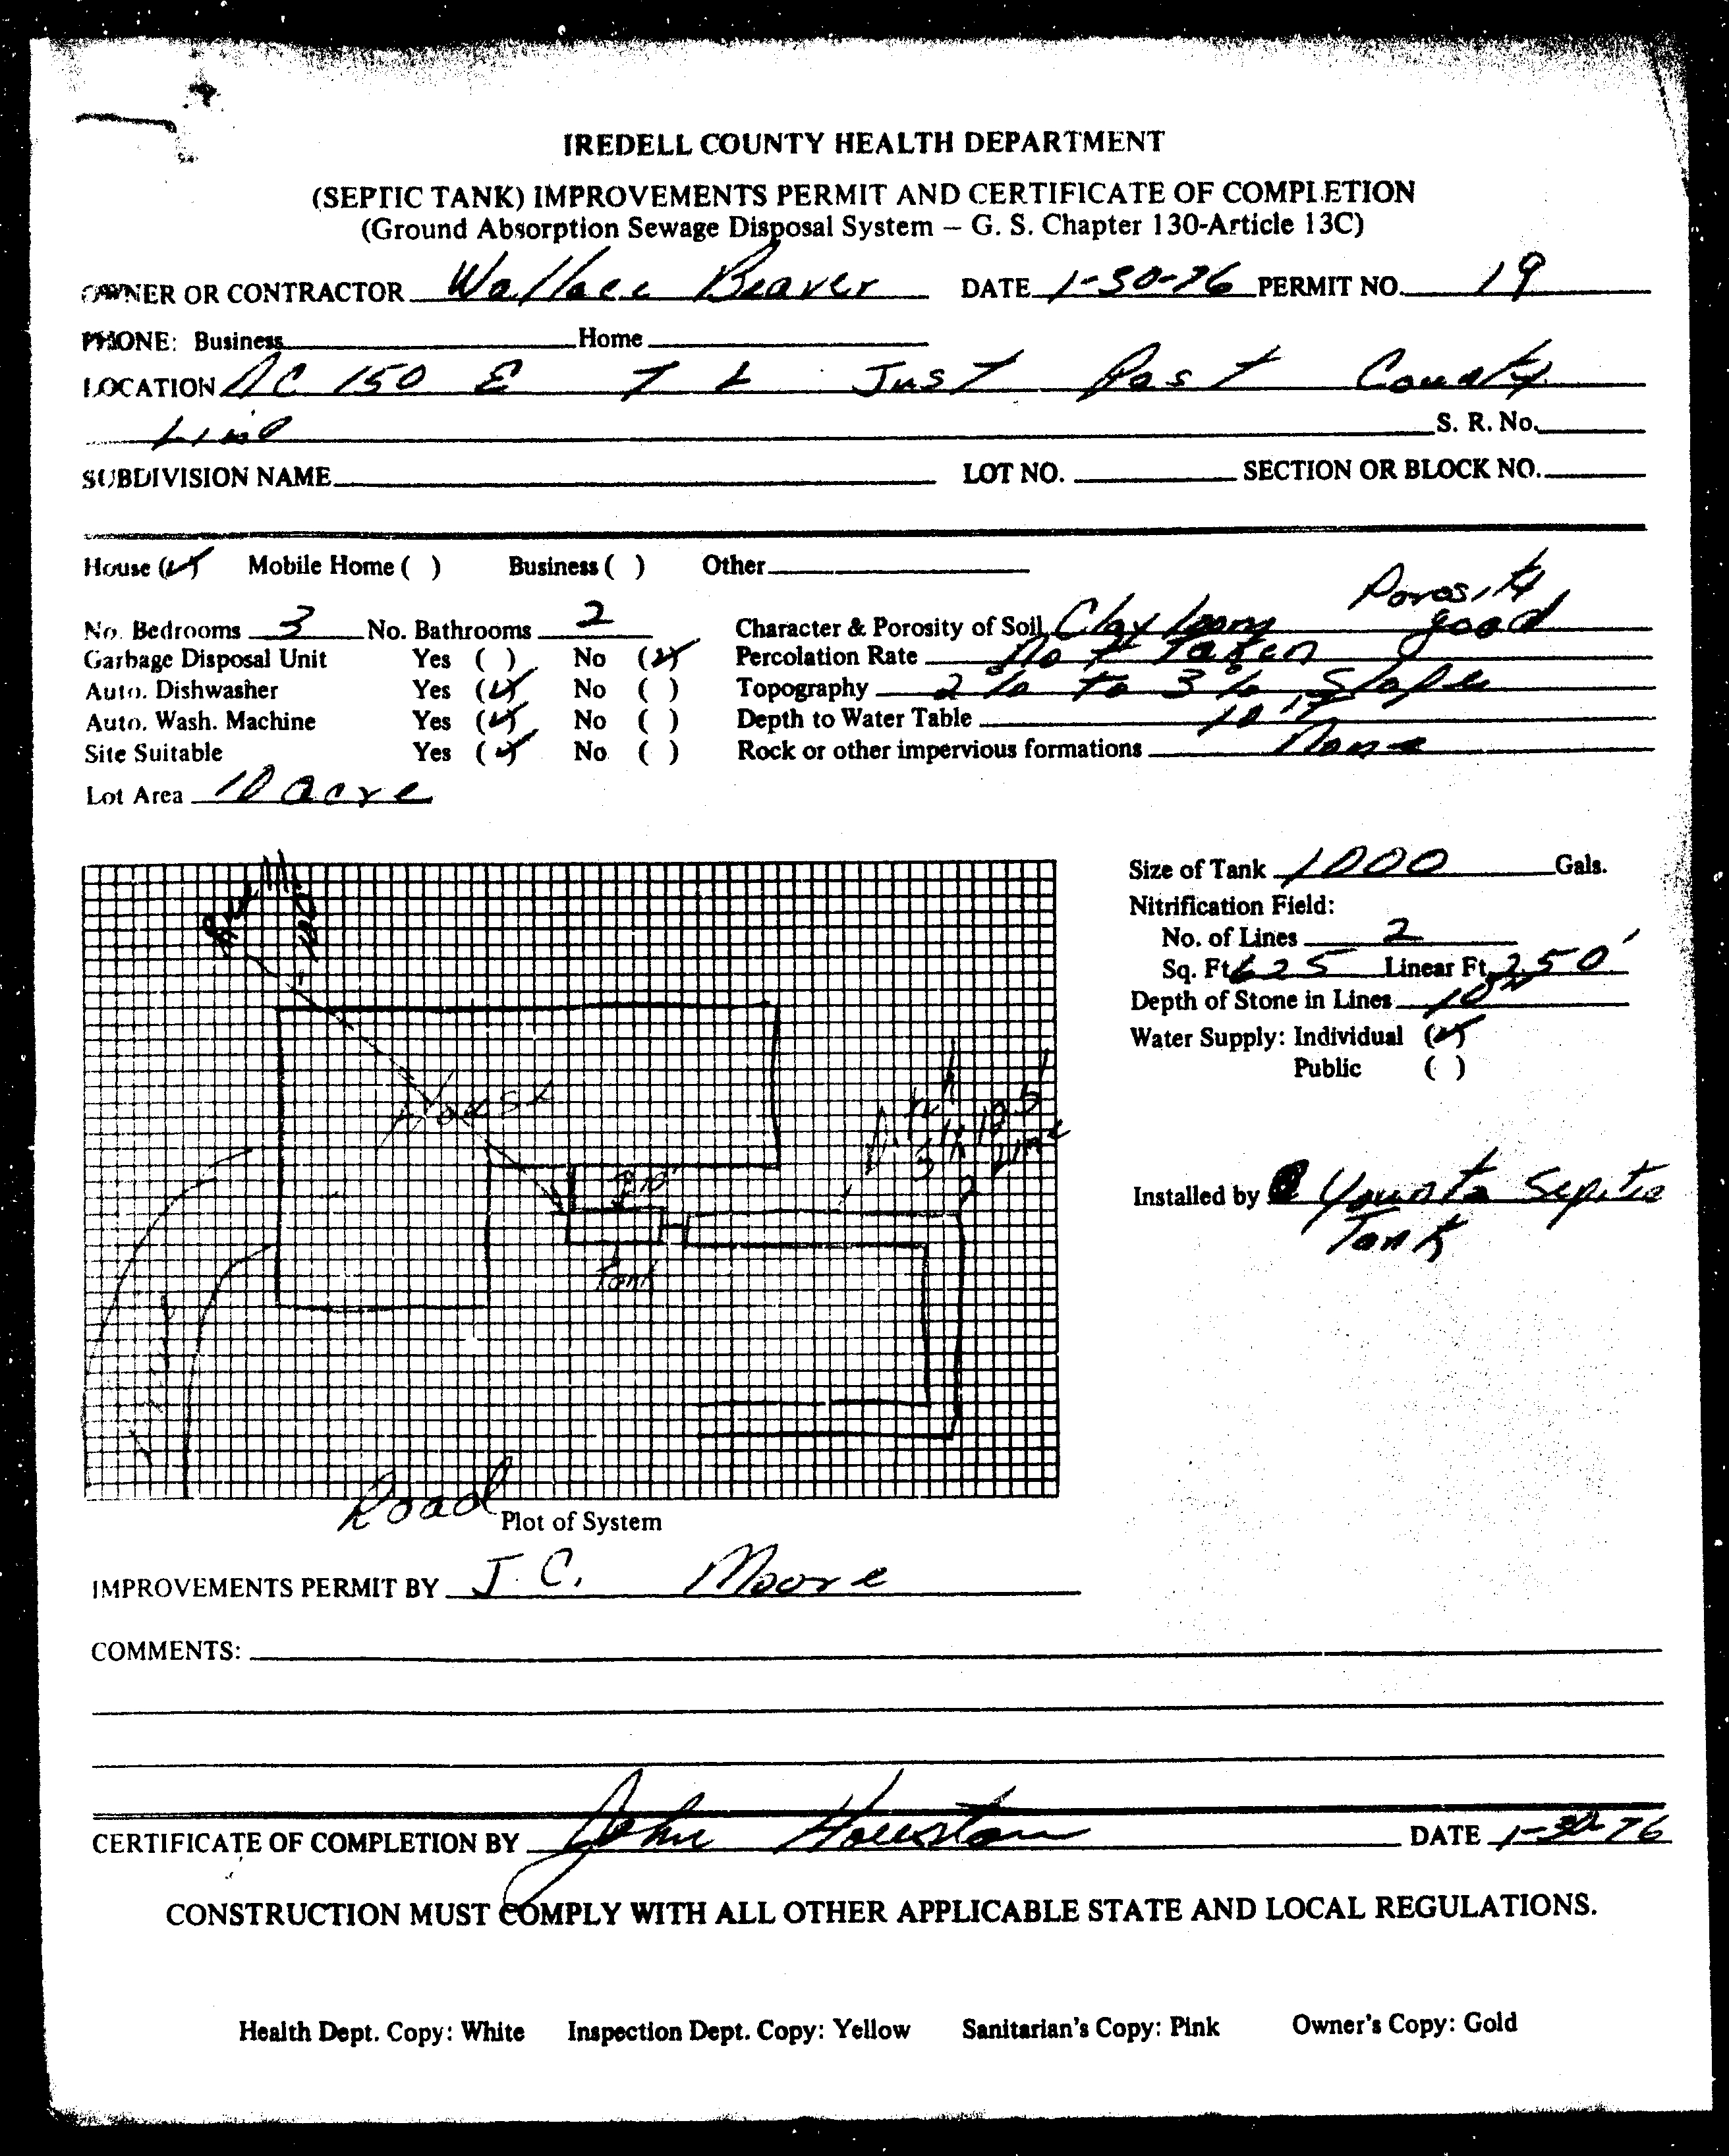 IREDELL COUNTY HEALTH DEPARTMENT
(SEPTIC TANK) IMPROVEMENTS PERMIT AND CERTIFICATE OF COMPLETION
(Ground Absorption Sewage Disposal System – G. S. Chapter 130-Article 13C)
OWNER OR CONTRACTOR Wallace Beaver DATE 1-30-76 PERMIT NO. 19
PHONE: Business Home
LOCATION NC 150 E T L Just Past County
Line S. R. No.
SUBDIVISION NAME LOT NO. SECTION OR BLOCK NO.
House (✓) Mobile Home ( ) Business ( ) Other
No. Bedrooms 3 No. Bathrooms 2
Garbage Disposal Unit Yes ( ) No (✓)
Auto. Dishwasher Yes (✓) No ( )
Auto. Wash. Machine Yes (✓) No ( )
Site Suitable Yes (✓) No ( )
Lot Area 10 acre
Character & Porosity of Soil Clay loam Porosity good
Percolation Rate Not Taken
Topography 2% to 3% Slope
Depth to Water Table 10'+
Rock or other impervious formations None
Size of Tank 1000 Gals.
Nitrification Field:
No. of Lines 2
Sq. Ft. 625 Linear Ft. 250'
Depth of Stone in Lines 10"
Water Supply: Individual (✓)
Public ( )
Installed by Younts Septic
Tank
100'
House
10'
Tank
Line
2
Road
Plot of System
IMPROVEMENTS PERMIT BY J. C. Moore
COMMENTS:
CERTIFICATE OF COMPLETION BY John Houston DATE 1-30-76
CONSTRUCTION MUST COMPLY WITH ALL OTHER APPLICABLE STATE AND LOCAL REGULATIONS.
Health Dept. Copy: White Inspection Dept. Copy: Yellow Sanitarian's Copy: Pink Owner's Copy: Gold